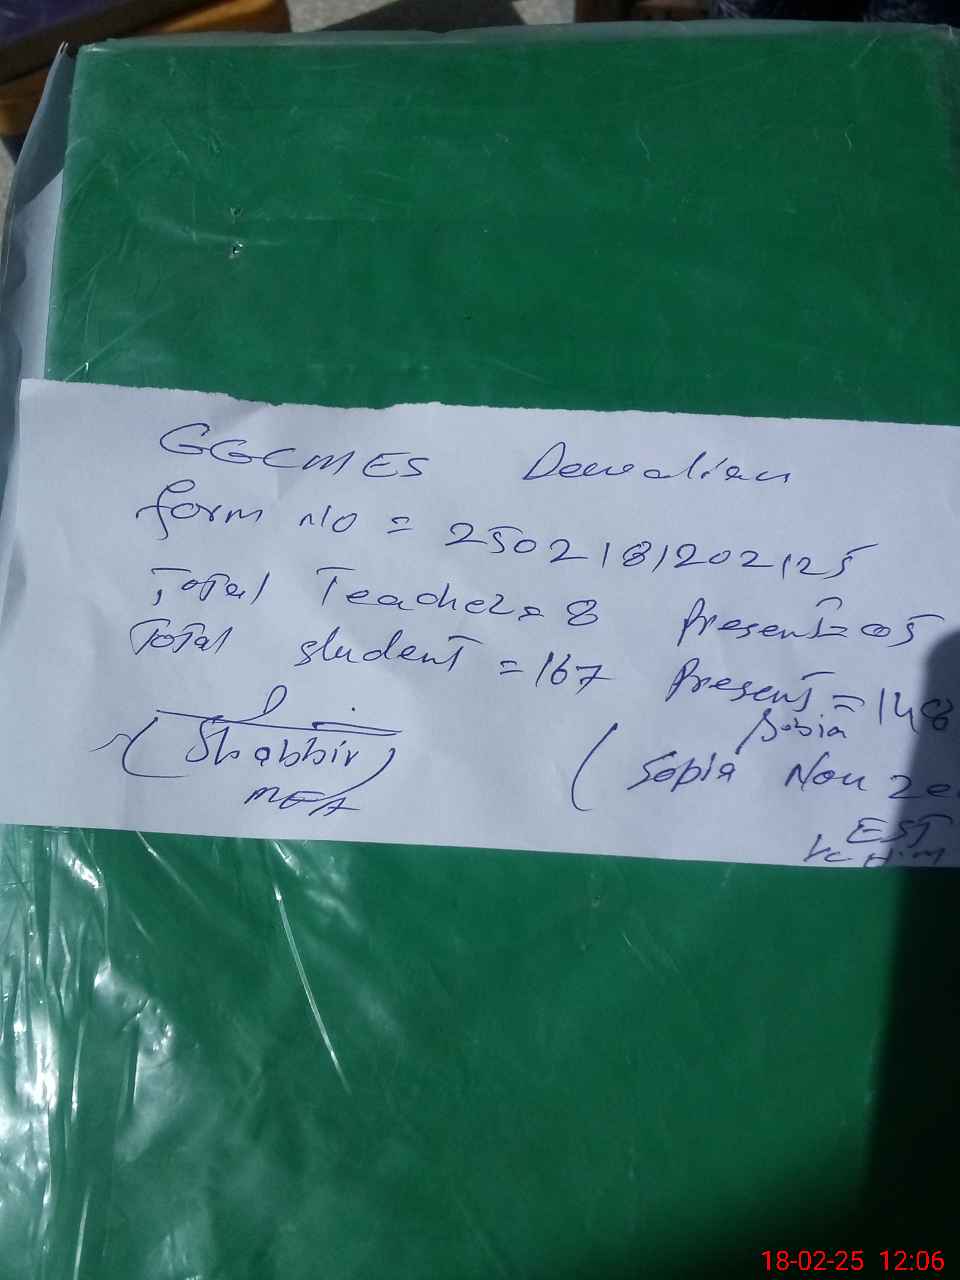 GGCMES Dewalian
form no = 2502181202125
Total Teacher = 8 Present = 05
Total student = 167 Present = 148
Sobia
(Shabbir) (Sobia Nou
MEA EST